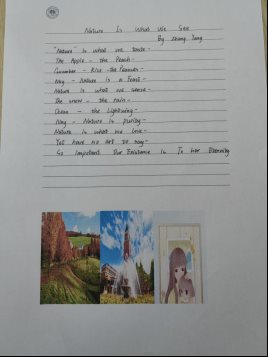 Nature Is What We See
By Zhang Yang
"Nature" is what we taste -
The Apple - the Peach -
Cucumber - Rice - the Farmer -
Nay - Nature is a Feast -
Nature is what we sense -
The snow - the rain -
Ocean - the Lightning -
Nay - Nature is purity -
Nature is what we love -
Yet have no art to say -
So Impotent Our Existence is To her Eternity